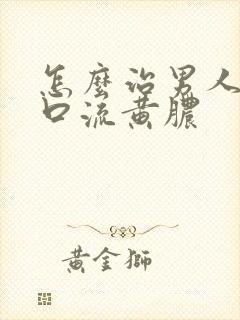 怎麼治男人
口流黄膿
黄金獅